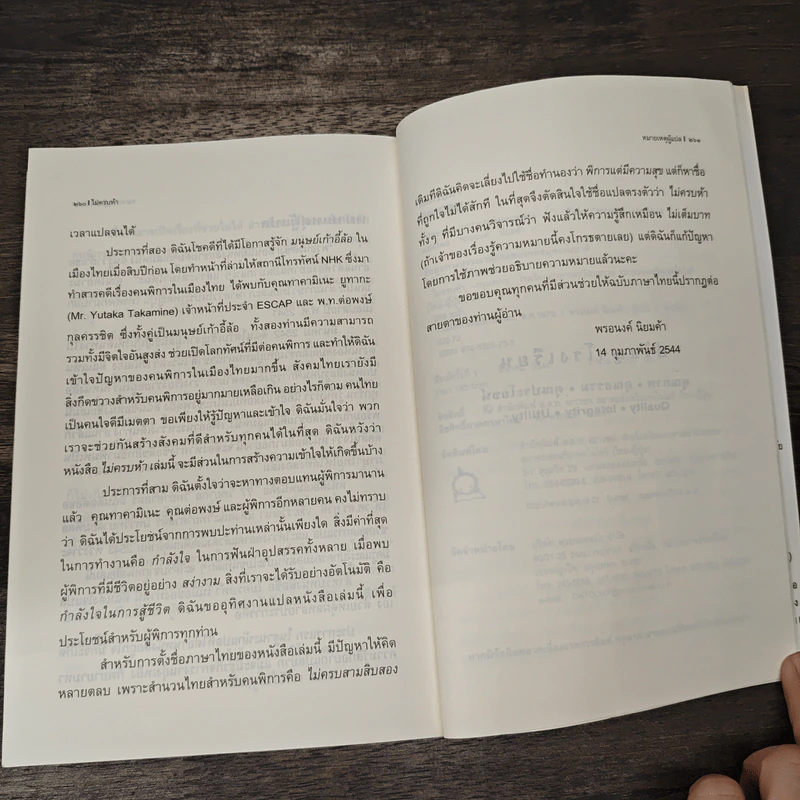 ๒๖๐ | ไม่ครบห้า
เวลาแปลจนได้
ประการที่สอง ดิฉันโชคดีที่ได้มีโอกาสรู้จัก มนุษย์เก้าอี้ล้อ ใน
เมืองไทยเมื่อสิบปีก่อน โดยทำหน้าที่ล่ามให้สถานีโทรทัศน์ NHK ซึ่งมา
ทำสารคดีเรื่องคนพิการในเมืองไทย ได้พบกับคุณทาคามิเนะ ยูทากะ
(Mr. Yutaka Takamine) เจ้าหน้าที่ประจำ ESCAP และ พ.ท.ต่อพงษ์
กุลครรชิต ซึ่งทั้งคู่เป็นมนุษย์เก้าอี้ล้อ ทั้งสองท่านมีความสามารถ
รวมทั้งมีจิตใจอันสูงส่ง ช่วยเปิดโลกทัศน์ที่มีต่อคนพิการ และทำให้ดิฉัน
เข้าใจปัญหาของคนพิการในเมืองไทยมากขึ้น สังคมไทยเรายังมี
สิ่งกีดขวางสำหรับคนพิการอยู่มากมายเหลือเกิน อย่างไรก็ตาม คนไทย
เป็นคนใจดีมีเมตตา ขอเพียงให้รู้ปัญหาและเข้าใจ ดิฉันมั่นใจว่า พวก
เราจะช่วยกันสร้างสังคมที่ดีสำหรับทุกคนได้ในที่สุด ดิฉันหวังว่า
หนังสือ ไม่ครบห้า เล่มนี้ จะมีส่วนในการสร้างความเข้าใจให้เกิดขึ้นบ้าง
ประการที่สาม ดิฉันตั้งใจว่าจะหาทางตอบแทนผู้พิการมานาน
แล้ว คุณทาคามิเนะ คุณต่อพงษ์ และผู้พิการอีกหลายคน คงไม่ทราบ
ว่า ดิฉันได้ประโยชน์จากการพบปะท่านเหล่านั้นเพียงใด สิ่งมีค่าที่สุด
ในการทำงานคือ กำลังใจ ในการฟันฝ่าอุปสรรคทั้งหลาย เมื่อพบ
ผู้พิการที่มีชีวิตอยู่อย่าง สง่างาม สิ่งที่เราจะได้รับอย่างอัตโนมัติ คือ
กำลังใจในการสู้ชีวิต ดิฉันขออุทิศงานแปลหนังสือเล่มนี้ เพื่อ
ประโยชน์สำหรับผู้พิการทุกท่าน
สำหรับการตั้งชื่อภาษาไทยของหนังสือเล่มนี้ มีปัญหาให้คิด
หลายตลบ เพราะสำนวนไทยสำหรับคนพิการคือ ไม่ครบสามสิบสอง
หมายเหตุผู้แปล | ๒๖๑
เดิมทีดิฉันคิดจะเลี่ยงไปใช้ชื่อทำนองว่า พิการแต่มีความสุข แต่ก็หาชื่อ
ที่ถูกใจไม่ได้สักที ในที่สุดจึงตัดสินใจใช้ชื่อแปลตรงตัวว่า ไม่ครบห้า
ทั้งๆ ที่มีบางคนวิจารณ์ว่า ฟังแล้วให้ความรู้สึกเหมือน ไม่เต็มบาท
(ถ้าเจ้าของเรื่องรู้ความหมายนี้คงโกรธตายเลย) แต่ดิฉันก็แก้ปัญหา
โดยการใช้ภาพช่วยอธิบายความหมายแล้วนะคะ
ขอขอบคุณทุกคนที่มีส่วนช่วยให้ฉบับภาษาไทยนี้ปรากฏต่อ
สายตาของท่านผู้อ่าน
พรอนงค์ นิยมค้า
14 กุมภาพันธ์ 2544